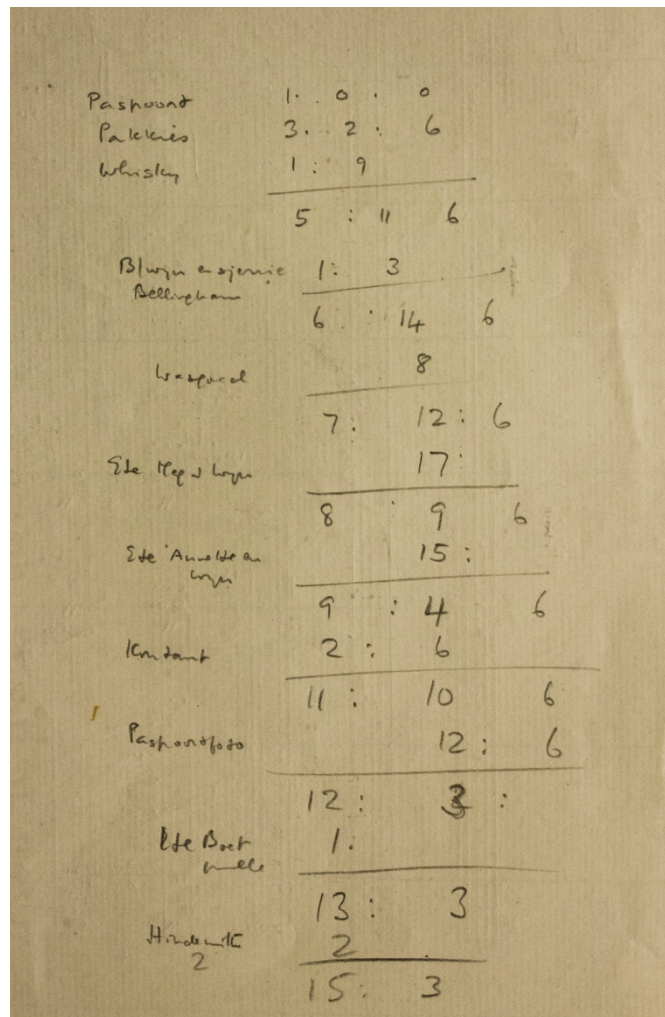 Paspoort 1. 0. 0
Pakkies 3. 2: 6
Whisky 1: 9
5 : 11 6
B/wyn en sjerrie 1: 3
Bellingham
6 : 14 6
Wasgoed 8
7: 12: 6
Ete Mep & wyn 17:
8 : 9 6
Ete Annette en 15:
wyn
9 : 4 6
Kontant 2: 6
11: 10 6
Paspoortfoto 12: 6
12: 3 :
Ete Boet 1.
hulle
13: 3
Hindemith 2
2
15: 3